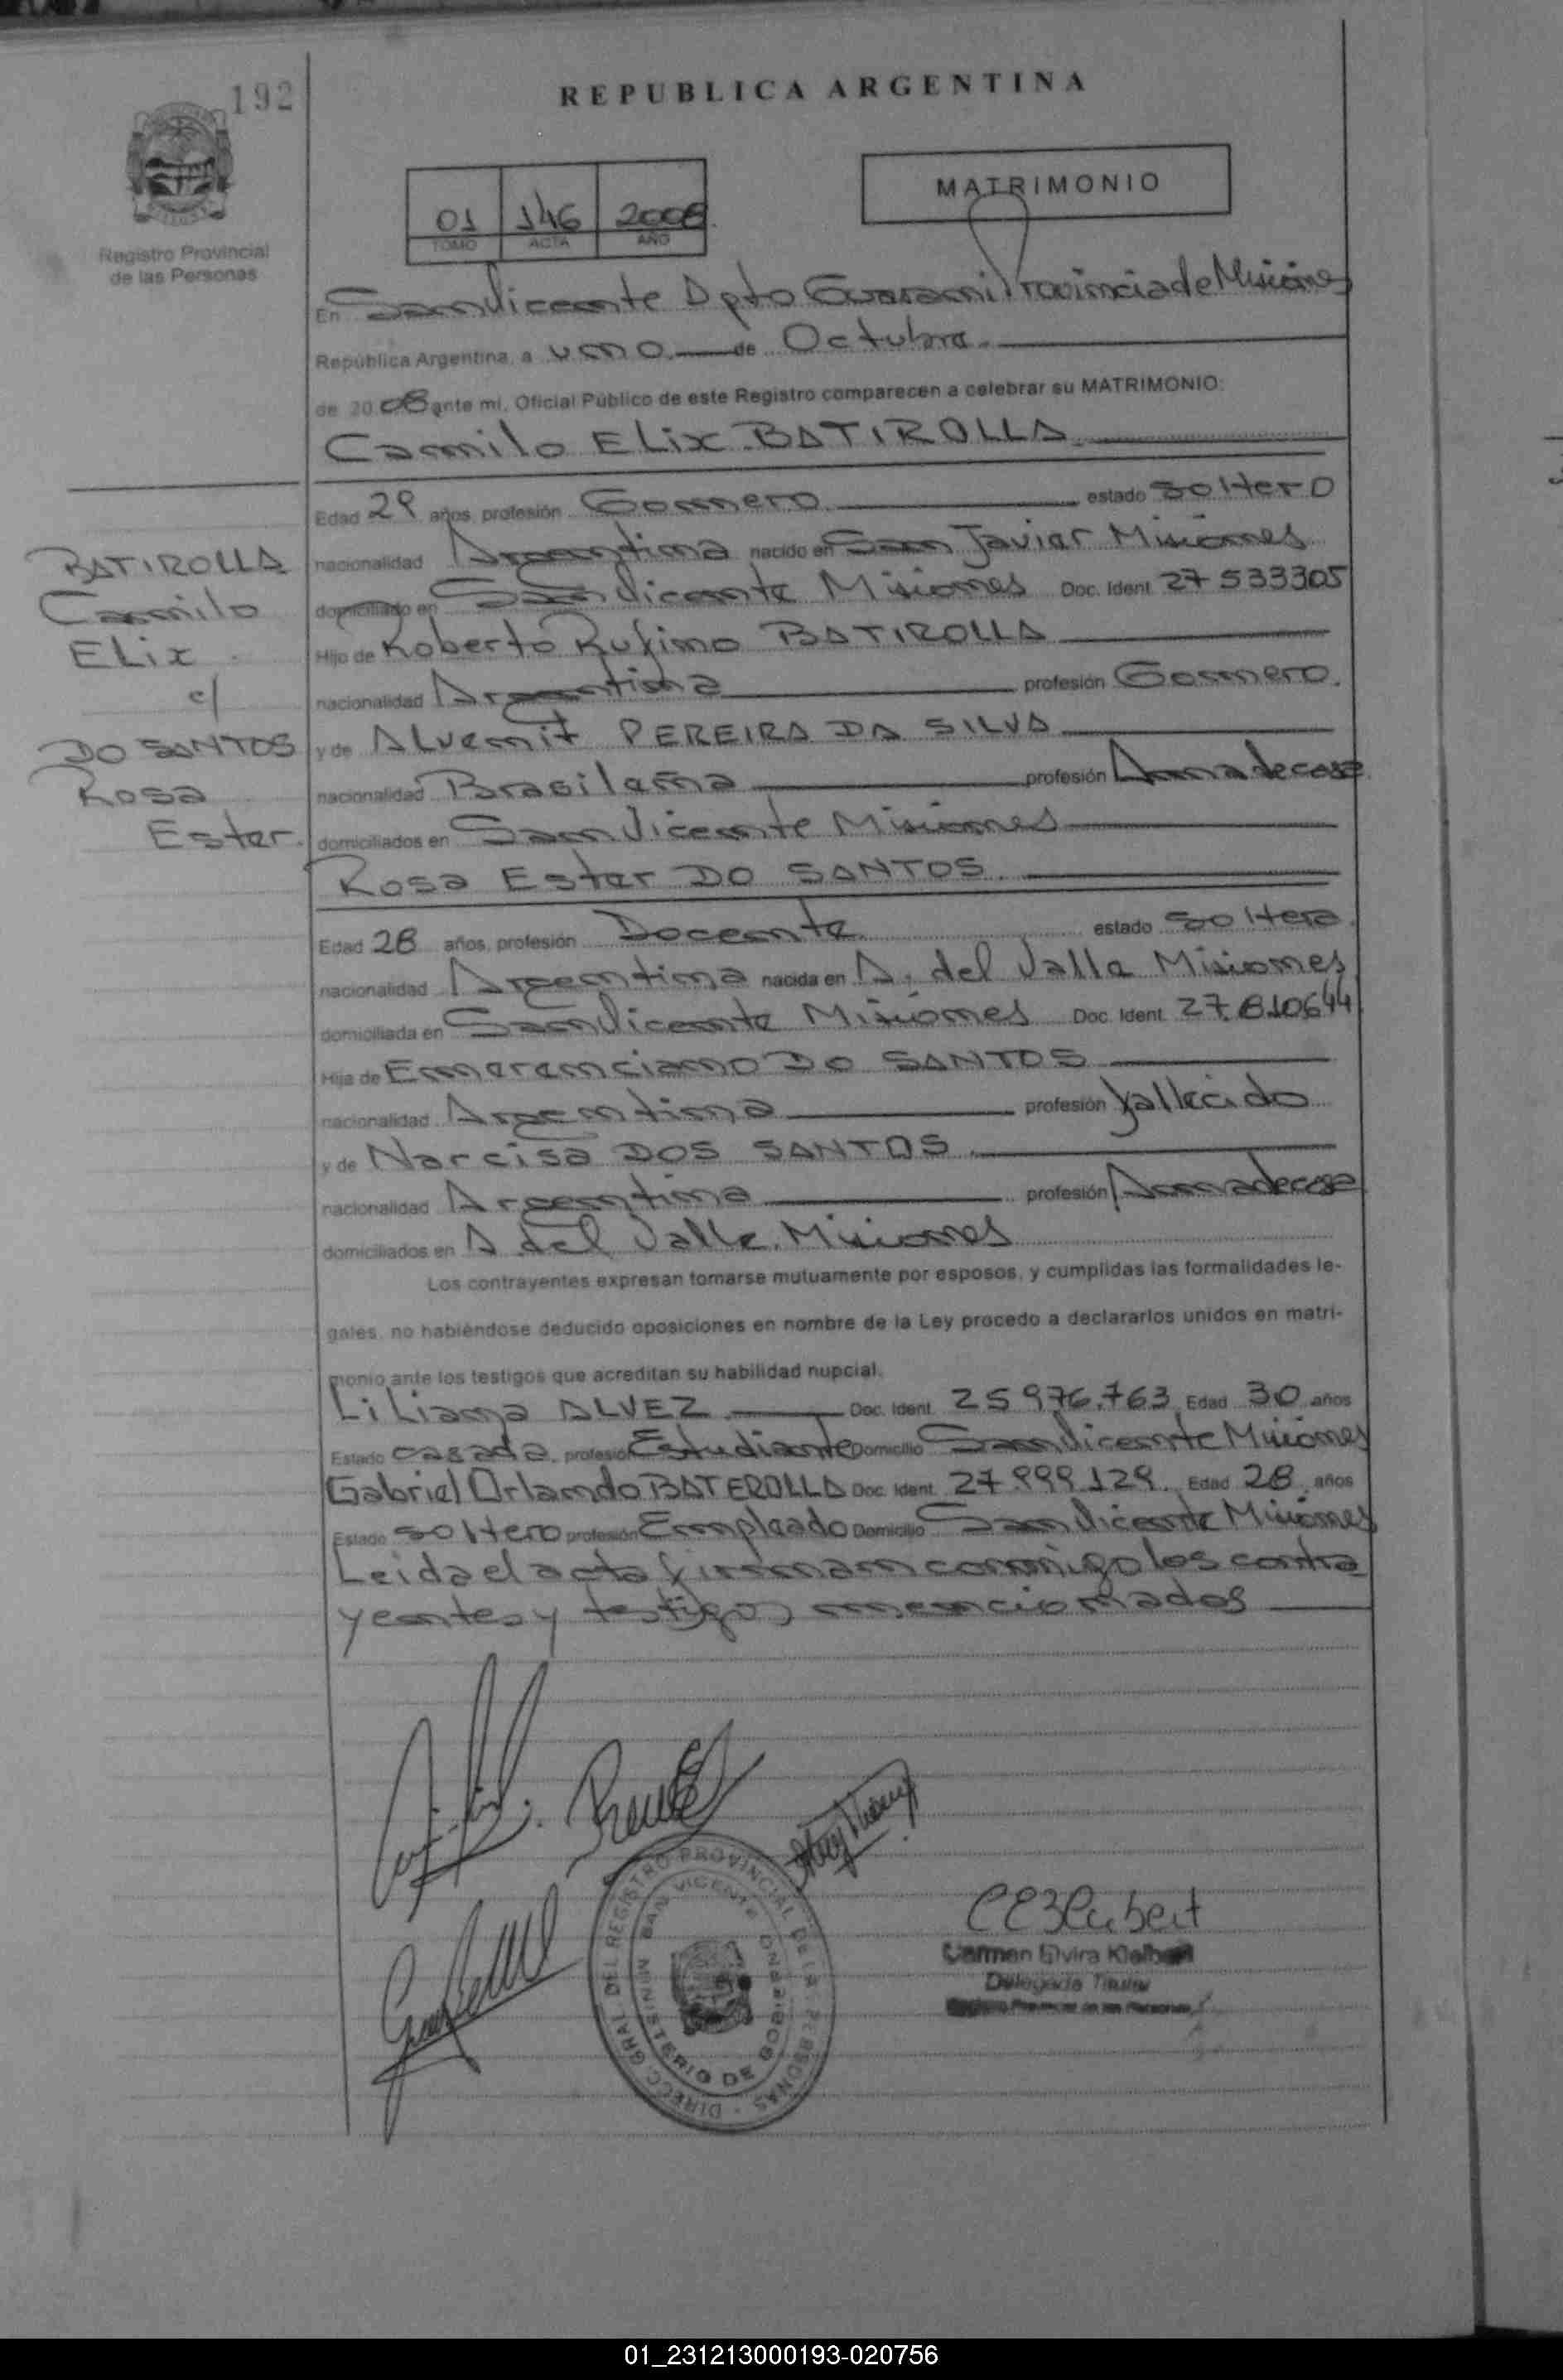 192
REPUBLICA ARGENTINA
Registro Provincial
de las Personas
01 146 2008
TOMO ACTA AÑO
MATRIMONIO
En San Vicente Dpto Guarani Provincia de Misiones
República Argentina, a uno de Octubre
de 2008 ante mi, Oficial Público de este Registro comparecen a celebrar su MATRIMONIO:
Camilo ELix BATIROLLA
Edad 29 años, profesión Gomero estado soltero
nacionalidad Argentina nacido en San Javier Misiones
domiciliado en San Vicente Misiones Doc. Ident. 27 533305
Hijo de Roberto Rufino BATIROLLA
nacionalidad Argentina profesión Gomero.
y de ALvenit PEREIRA DA SILVA
nacionalidad Brasileña profesión Ama de casa
domiciliados en San Vicente Misiones
BATIROLLA
Camilo
ELix
c/
DO SANTOS
Rosa
Ester.
Rosa Ester DO SANTOS.
Edad 28 años, profesión Docente estado soltera.
nacionalidad Argentina nacida en A. del Valle Misiones
domiciliada en San Vicente Misiones Doc. Ident. 27.810644
Hija de Emerenciano DO SANTOS
nacionalidad Argentina profesión fallecido
y de Narcisa DOS SANTOS
nacionalidad Argentina profesión Ama de casa
domiciliados en A del Valle. Misiones
Los contrayentes expresan tomarse mutuamente por esposos, y cumplidas las formalidades le-
gales, no habiéndose deducido oposiciones en nombre de la Ley procedo a declararlos unidos en matri-
monio ante los testigos que acreditan su habilidad nupcial.
Liliana ALVEZ Doc. Ident. 25 976.763 Edad 30 años
Estado casada profesión Estudiante Domicilio San Vicente Misiones
Gabriel Orlando BATEROLLA Doc. Ident. 27.999.129. Edad 28 años
Estado soltero profesión Empleado Domicilio San Vicente Misiones
Leida el acta firman conmigo los contra
yentes y testigos mencionados
DIRECC. GRAL. DEL REGISTRO PROVINCIAL DE LAS PERSONAS
SAN VICENTE
MINISTERIO DE GOBIERNO
Carmen Elvira
Delegada Titular
Registro Provincial de las Personas
01_231213000193-020756